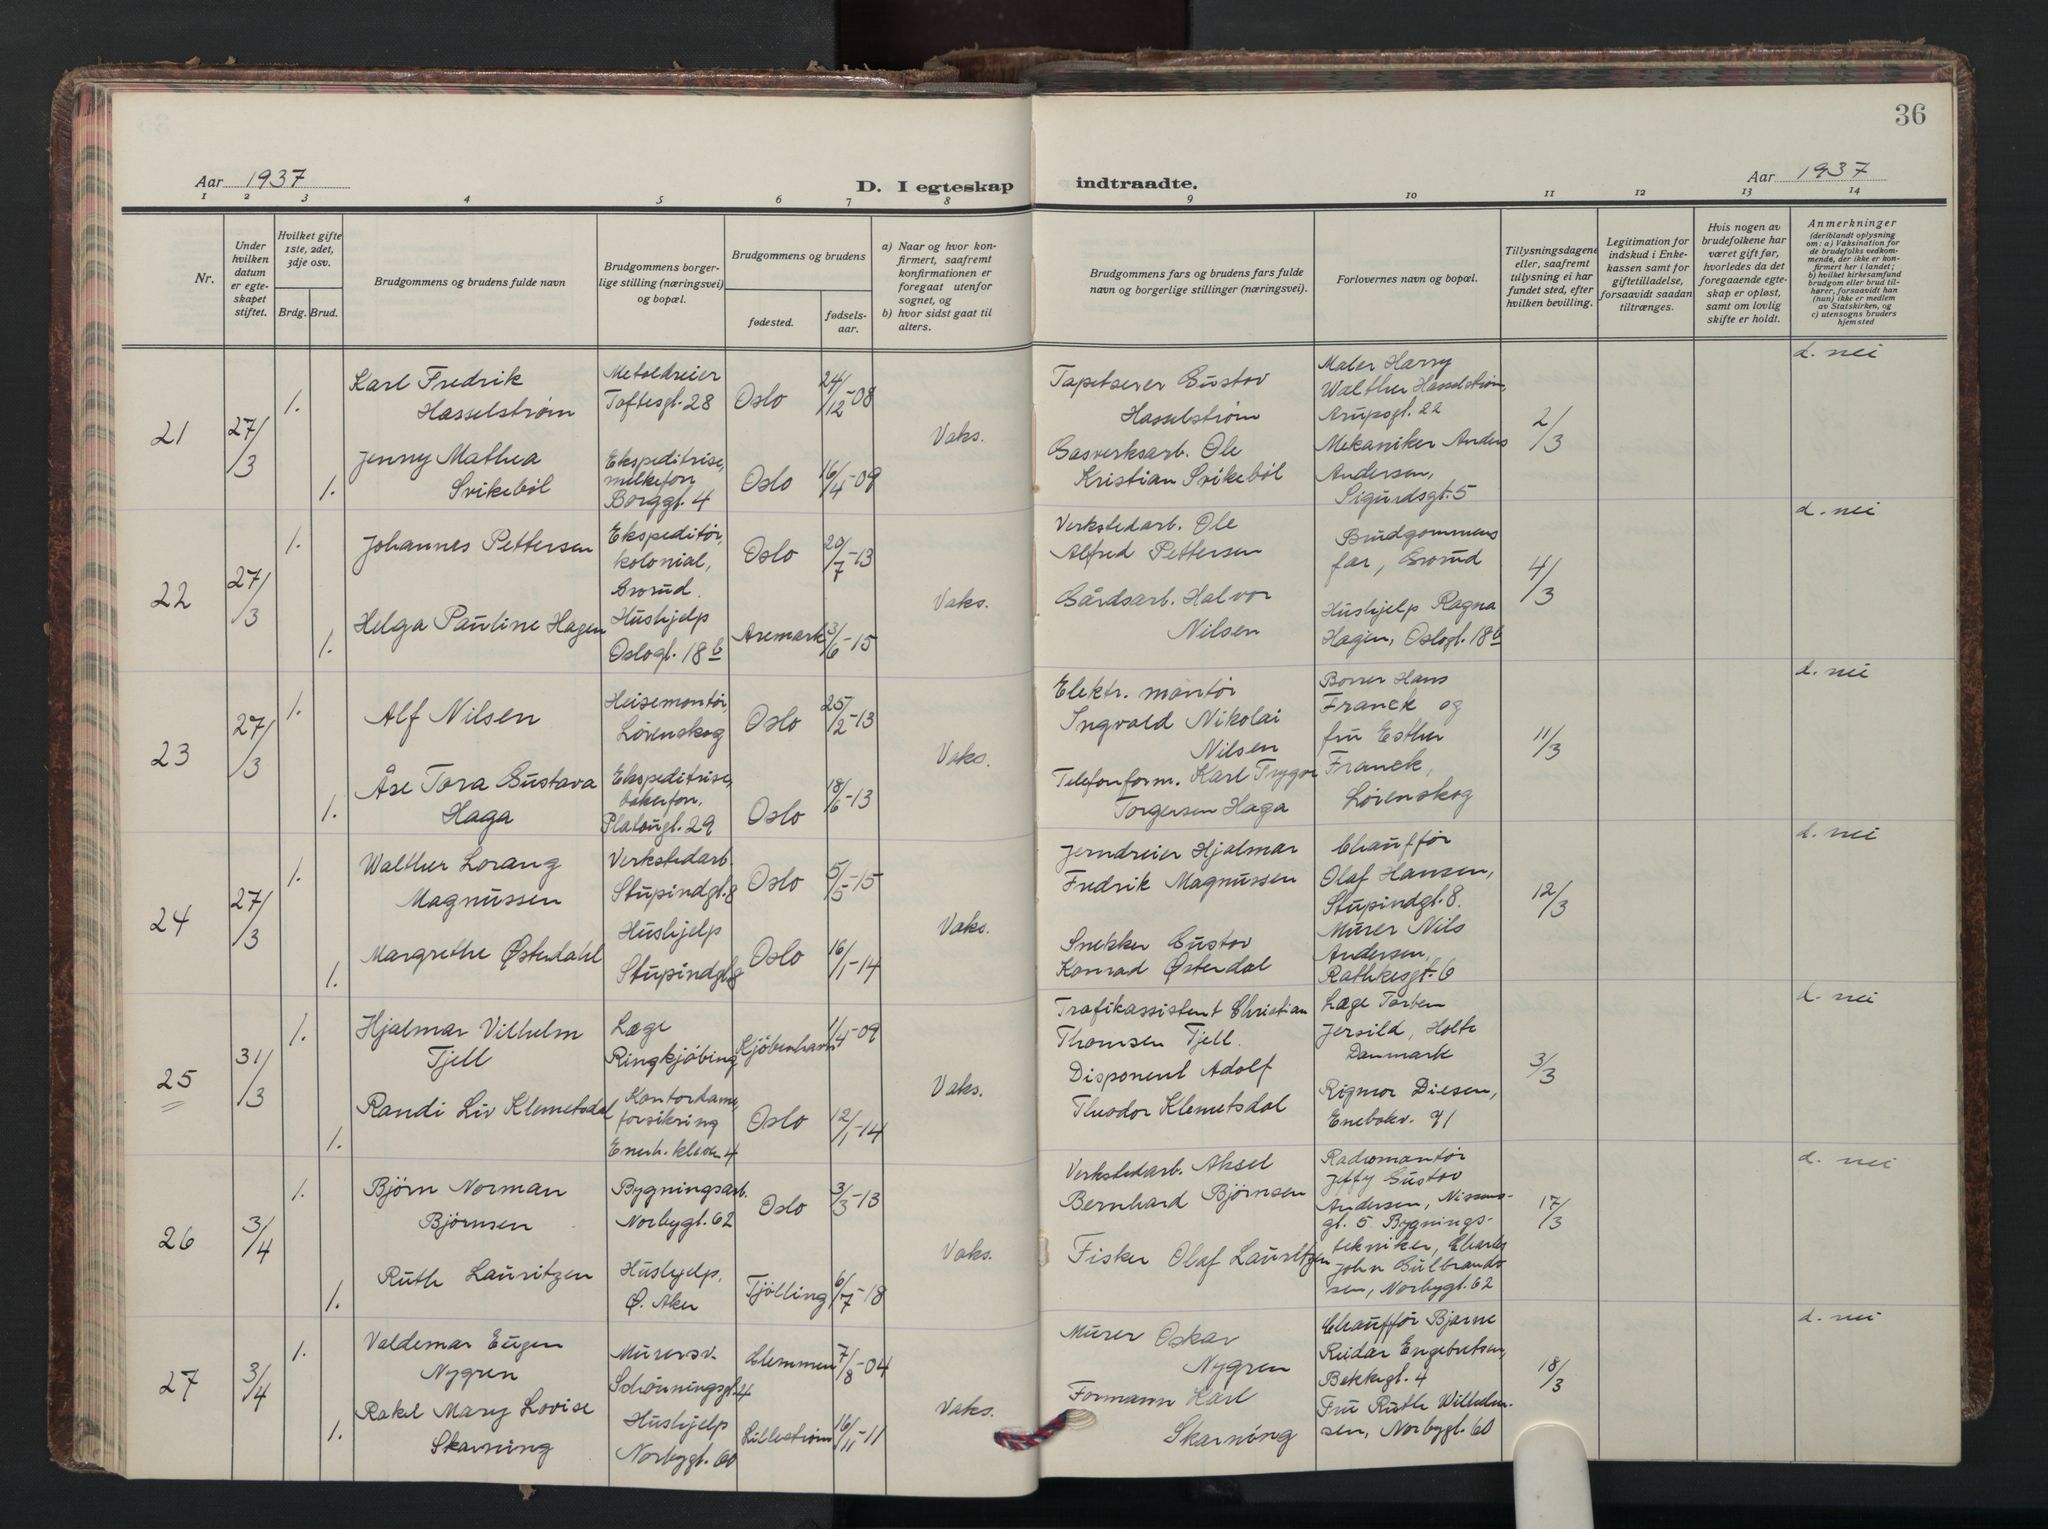 36
Aar 1937
D. I egteskap
indtraadte.
Aar 1937
1 2 3 4 5 6 7 8 9 10 11 12 13 14
Nr.
Under
hvilken
datum
er egte-
skapet
stiftet.
Hvilket gifte
1ste, 2det,
3dje osv.
Brdg. Brud.
Brudgommens og brudens fulde navn
Brudgommens borger-
lige stilling (næringsvei)
og bopæl.
Brudgommens og brudens
fødested.
fødsels-
aar.
a) Naar og hvor kon-
firmert, saafremt
konfirmationen er
foregaat utenfor
sognet, og
b) hvor sidst gaat til
alters.
Brudgommens fars og brudens fars fulde
navn og borgerlige stillinger (næringsvei).
Forlovernes navn og bopæl.
Tillysningsdagene
eller, saafremt
tillysning ei har
fundet sted, efter
hvilken bevilling.
Legitimation for
indskud i Enke-
kassen samt for
giftetilladelse,
forsaavidt saadan
tiltrænges.
Hvis nogen av
brudefolkene har
været gift før,
hvorledes da det
foregaaende egte-
skap er opløst,
samt om lovlig
skifte er holdt.
Anmerkninger
(deriblandt oplysning
om: a) Vaksination for
de brudefolks vedkom-
mende, der ikke er kon-
firmert her i landet;
b) hvilket kirkesamfund
brudgom eller brud til-
hører, forsaavidt han
(hun) ikke er medlem
av Statskirken, og
c) utensogns bruders
hjemsted
21
27/3
1.
Karl Fredrik
Hasselstrøm
Metaldreier
Toftesgt. 28
Oslo
24/12-08
1.
Jenny Mathea
Svikebøl
Ekspeditrise,
melkeforr.
Borggt. 4
Oslo
16/4-09
Vaks.
Tapetserer Gustav
Hasselstrøm
Gasverksarb. Ole
Kristian Svikebøl
Maler Harry
Walther Hasselstrøm,
Arupsgt. 22
Mekaniker Anders
Andersen,
Sigurdsgt. 5
2/3
d. nei
22
27/3
1.
Johannes Pettersen
Ekspeditør,
kolonial,
Grorud.
Oslo
20/7-13
1.
Helga Pauline Hagen
Hushjelp
Oslogt. 18 b
Aremark
3/6-15
Vaks.
Verkstedarb. Ole
Alfred Pettersen
Gårdsarb. Halvor
Nilsen
Brudgommens
far, Grorud
Hushjelp Ragna
Hagen, Oslogt. 18 b
4/3
d. nei
23
27/3
1.
Alf Nilsen
Heisemontør,
Lørenskog
Oslo
25/2-13
1.
Åse Tora Gustava
Haga
Ekspeditrise,
bakerforr.
Platougt. 29
Oslo
18/6-13
Vaks.
Elektr. montør
Ingvald Nikolai
Nilsen
Telefonform. Karl Trygve
Torgersen Haga
Borrer Hans
Franck og
fru Esther
Franck,
Lørenskog
11/3
d. nei
24
27/3
1.
Walther Lorang
Magnussen
Verkstedarb.
Stupindgt. 8
Oslo
5/5-15
1.
Margrethe Østerdahl
Hushjelp
Stupindgt. 8
Oslo
16/1-14
Vaks.
Jerndreier Hjalmar
Fredrik Magnussen
Snekker Gustav
Konrad Østerdal
Chauffør
Olaf Hansen,
Stupindgt. 8.
Murer Nils
Andersen,
Rathkesgt. 6
12/3
d. nei
25
31/3
1.
Hjalmar Vilhelm
Tjell
Læge
Ringkjøbing
Kjøbenhavn
1/4-09
1.
Randi Liv Klemetsdal
Kontordame,
forsikring
Enerh. kleven 4
Oslo
12/1-14
Vaks.
Trafikassistent Christian
Thomsen Tjell.
Disponent Adolf
Theodor Klemetsdal
Læge Torben
Jersild, Holte
Danmark
Rigmor Diesen,
Enebakv. 71
3/3
d. nei
26
3/4
1.
Bjørn Norman
Bjørnsen
Bygningsarb.
Norbygt. 62
Oslo
3/3-13
1.
Ruth Lauritzen
Hushjelp,
Ø. Aker
Tjølling
6/7-18
Vaks.
Verkstedarb. Aksel
Bernhard Bjørnsen
Fisker Olaf Lauritzen
Radiomontør
Jeffy Gustav
Andersen, Nissens-
gt. 5 Bygnings-
tekniker, Charles
John Gulbrand-
sen, Norbygt. 62
17/3
d. nei
27
3/4
1.
Valdemar Eugen
Nygren
Murersv.
Schønningsgt. 4
Glemmen
7/8-04
1.
Rakel Mary Lovise
Skarning
Hushjelp
Norbygt. 60
Lillestrøm
16/11-11
Vaks.
Murer Oskar
Nygren
Formann Karl
Skarning
Chauffør Bjarne
Reidar Engebretsen,
Bekkegt. 4
Fru Ruth Wilhelm-
sen, Norbygt. 60
18/3
d. nei